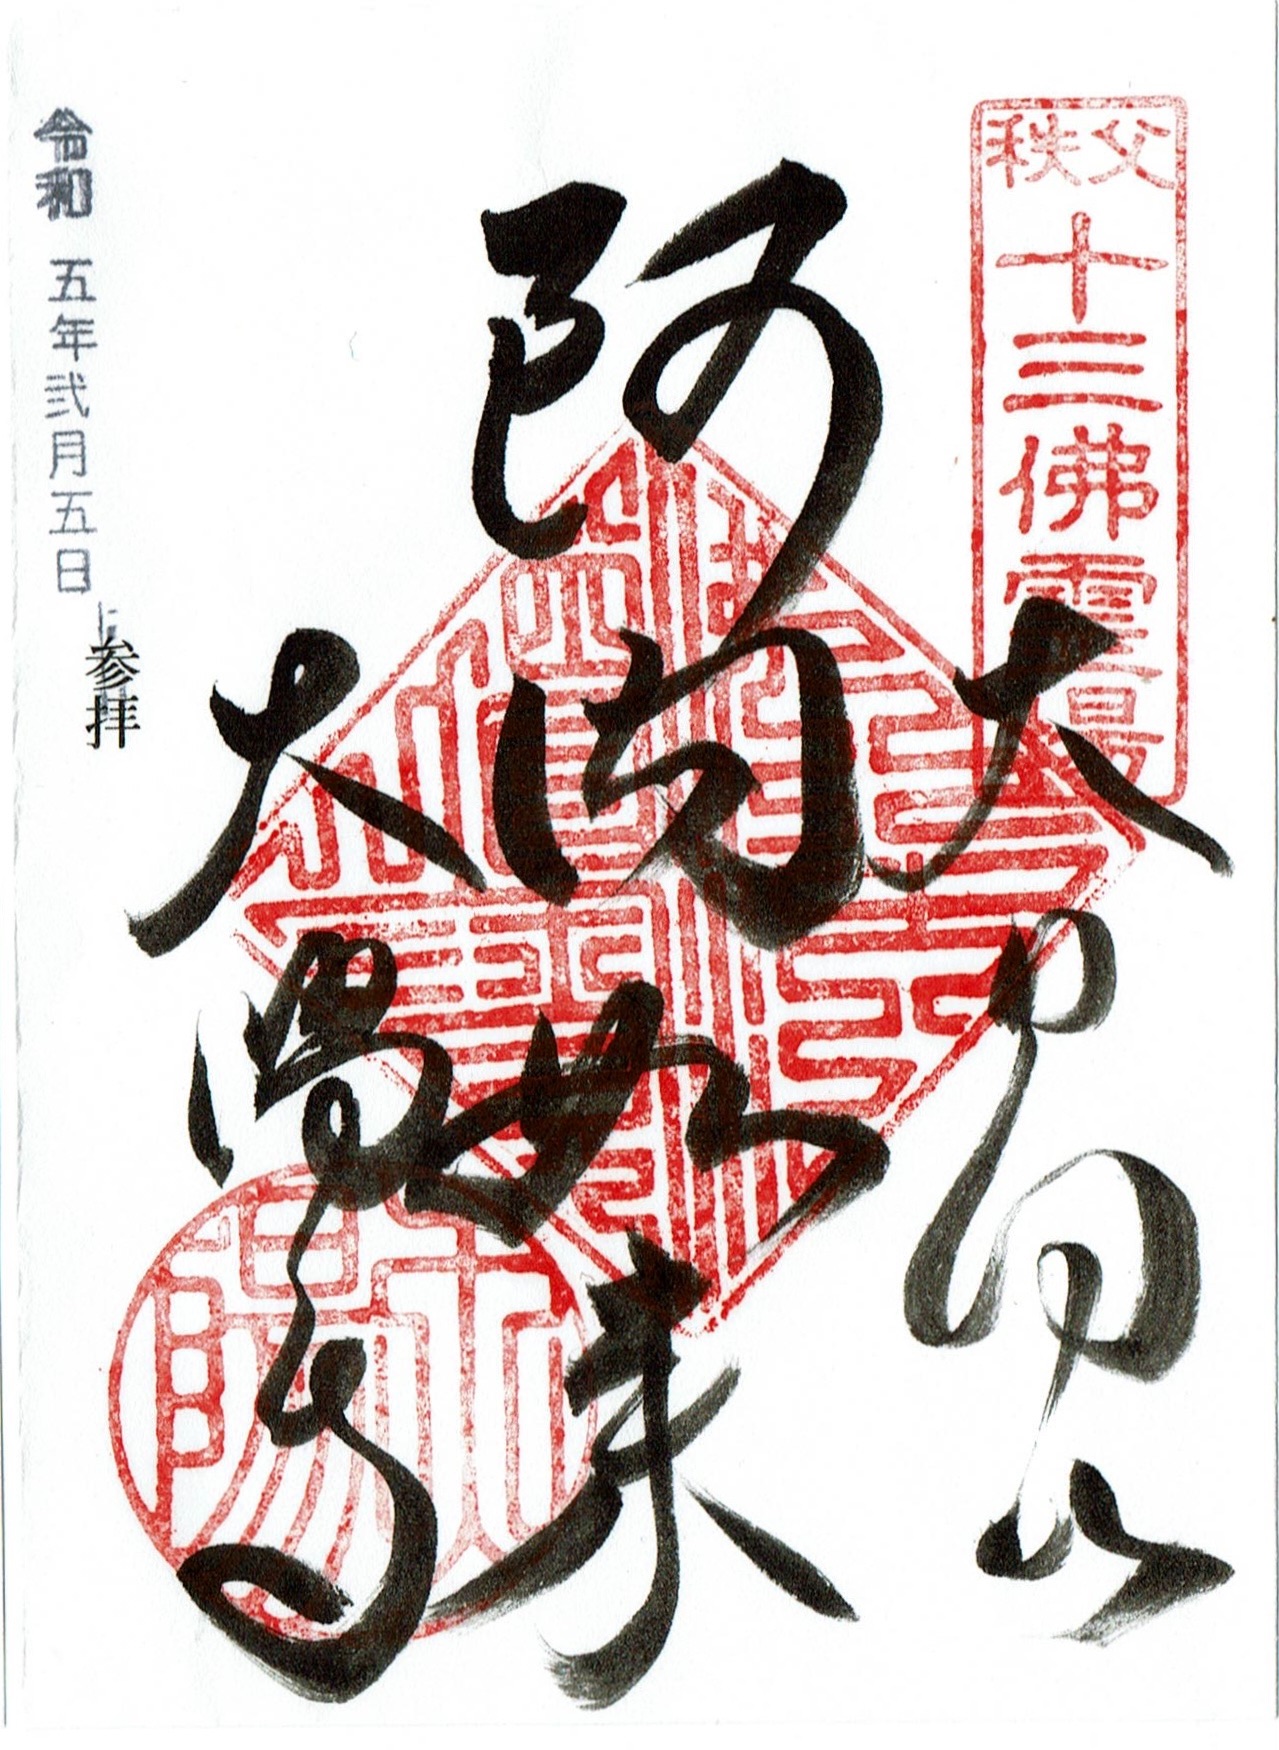 秩父
十三佛霊場
大日向山
阿閦如来
大陽寺
令和 五年弐月五日
参拝